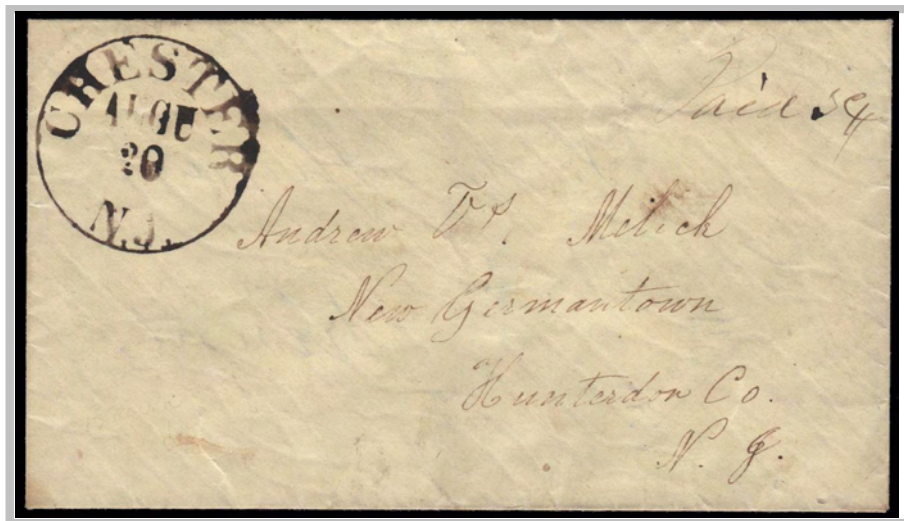 CHESTER
AUGU
20
N.J.
Paid
Andrew Melick
New Germantown
Hunterdon Co.
N. J.